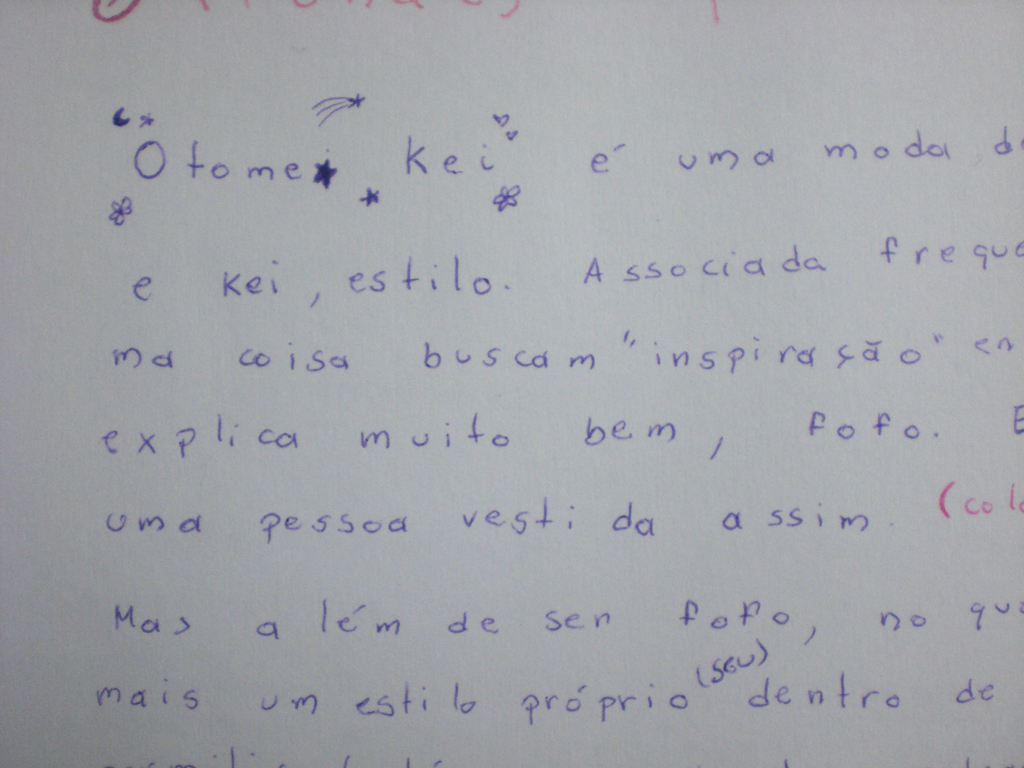 Otome Kei é uma moda
e Kei, estilo. Associada
ma coisa buscam "inspiração"
explica muito bem, fofo.
uma pessoa vestida assim.
Mas além de ser fofo, no
mais um estilo próprio (seu) dentro de